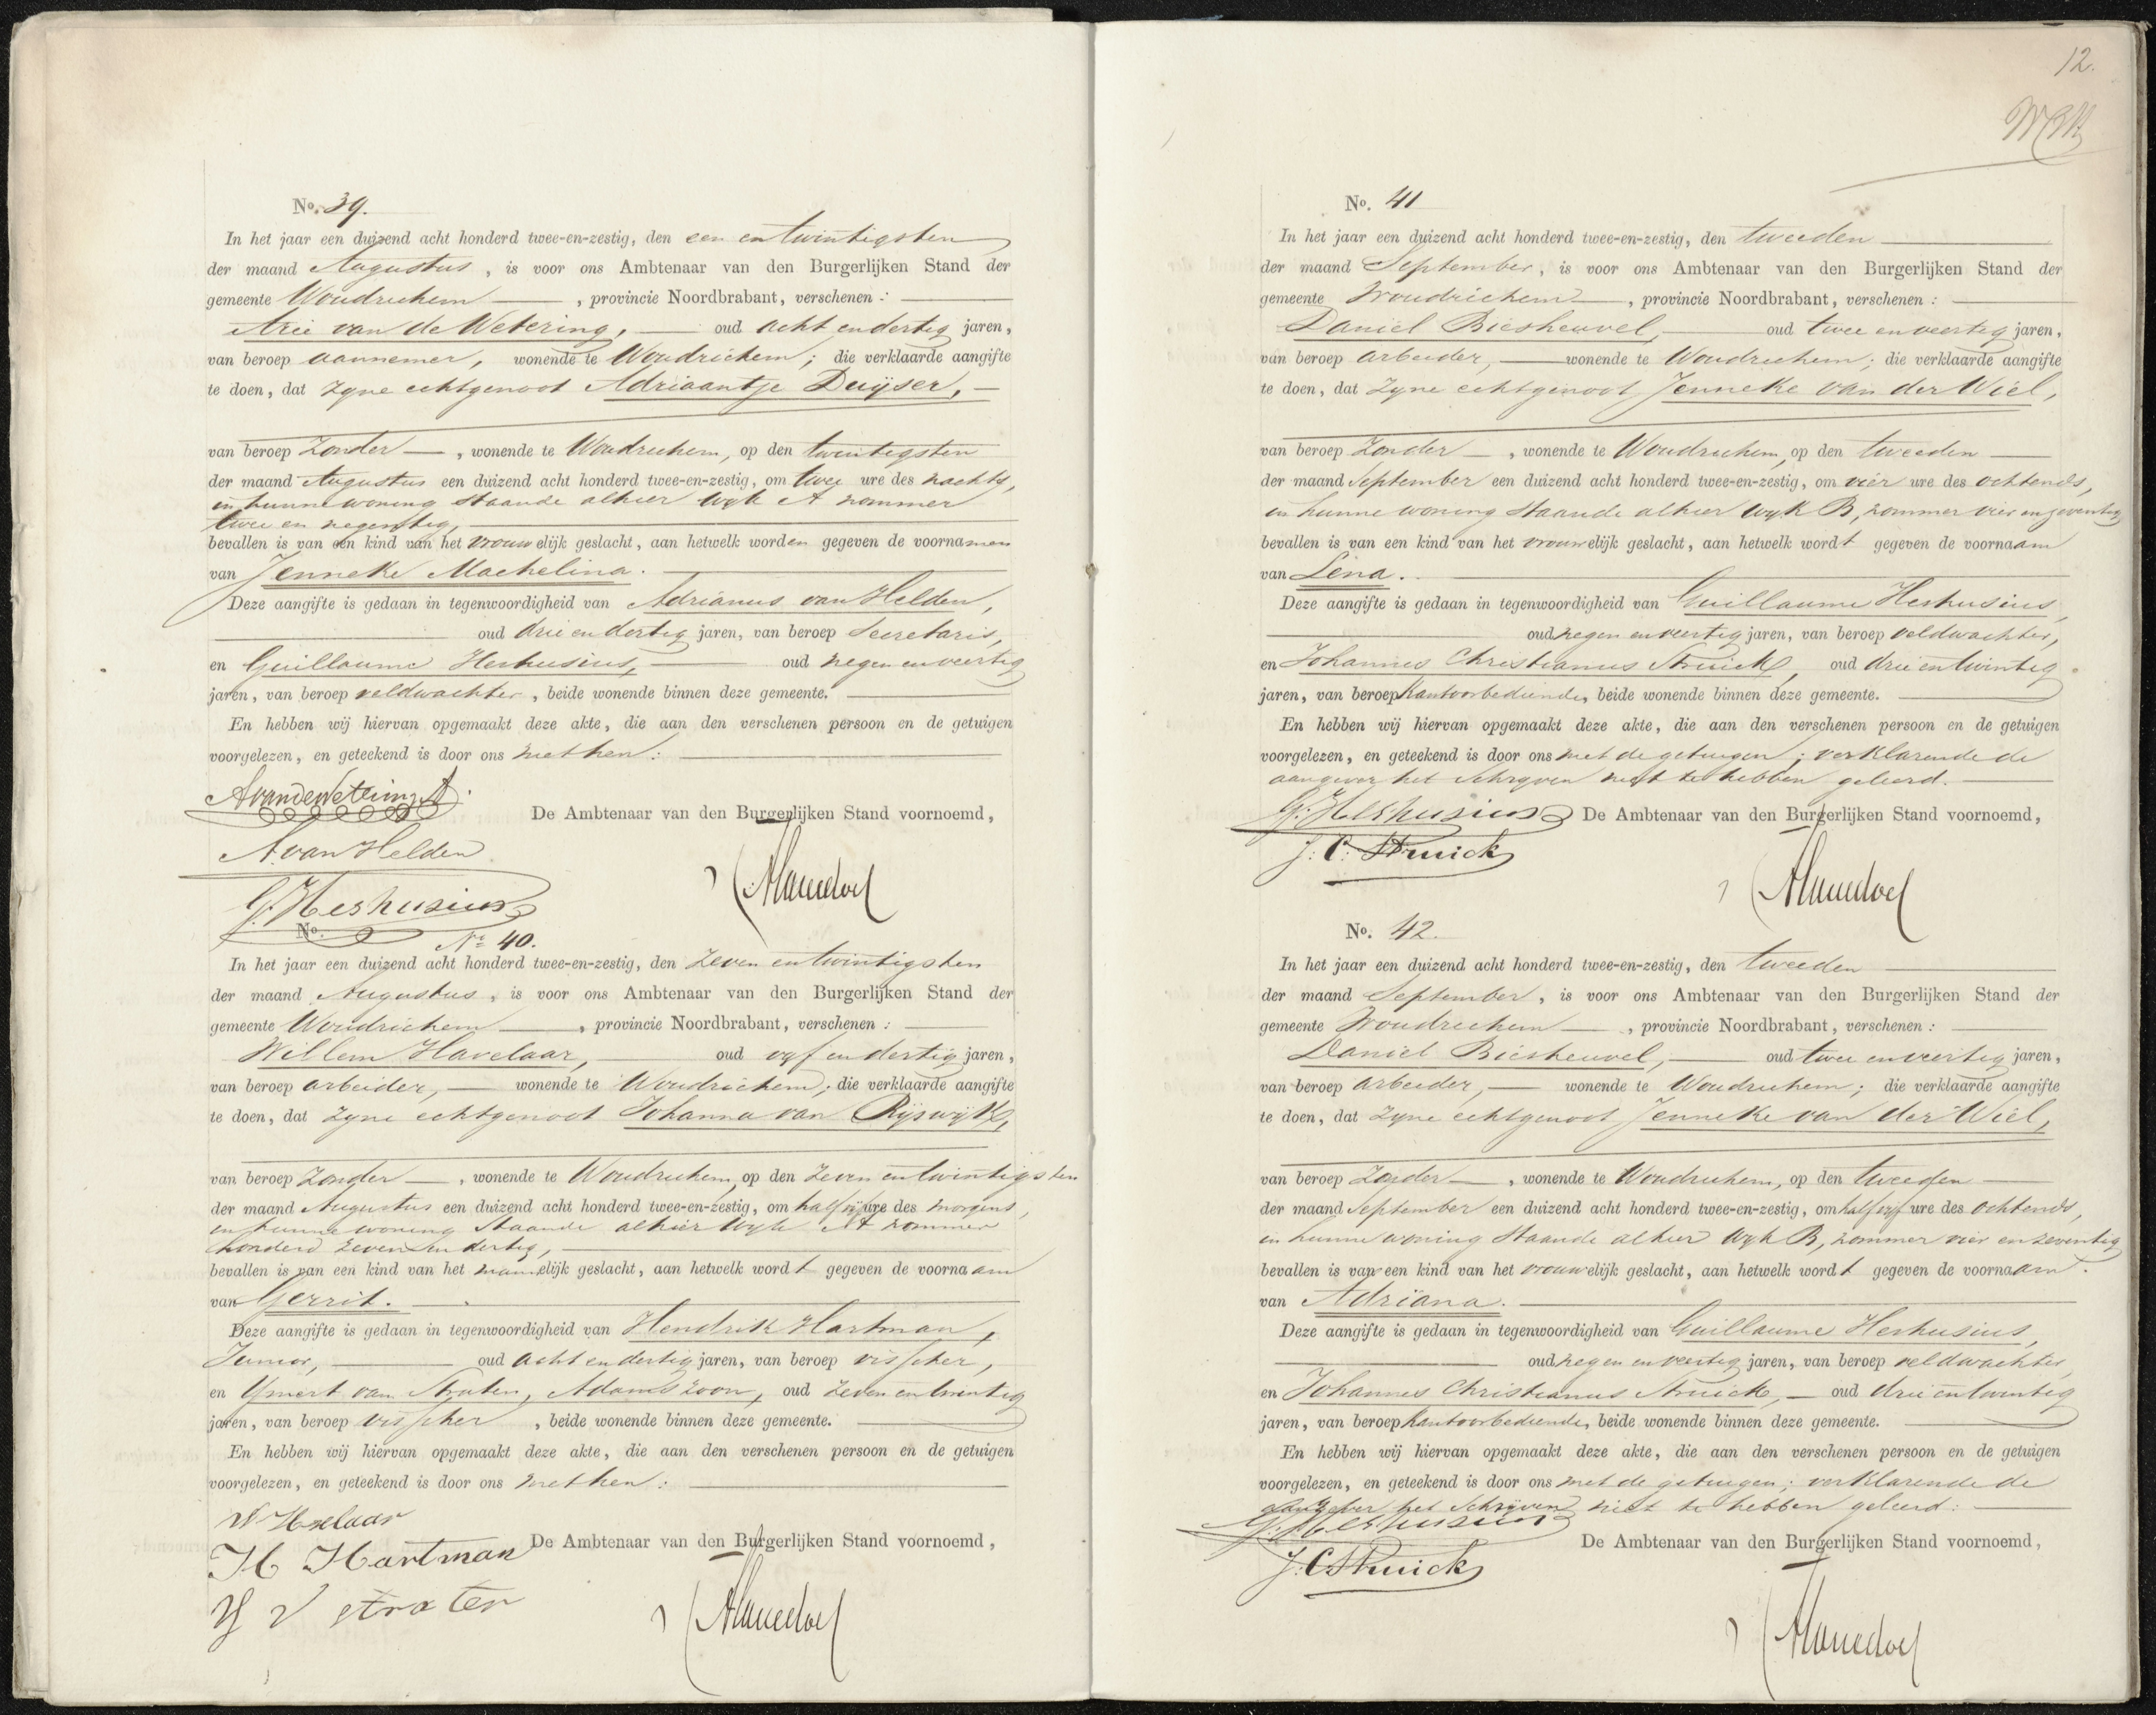 No. 39.
In het jaar een duizend acht honderd twee-en-zestig, den een en twintigsten
der maand Augustus, is voor ons Ambtenaar van den Burgerlijken Stand der
gemeente Woudrichem, provincie Noordbrabant, verschenen:
Arie van de Wetering, oud acht en dertig jaren,
van beroep aannemer, wonende te Woudrichem; die verklaarde aangifte
te doen, dat zyne echtgenoot Adriaantje Duijser,
van beroep Zonder, wonende te Woudrichem, op den twintigsten
der maand Augustus een duizend acht honderd twee-en-zestig, om twee ure des nachts,
in hunne woning staande alhier Wyk A nommer
twee en negentig,
bevallen is van een kind van het vrouwelijk geslacht, aan hetwelk worden gegeven de voornamen
van Jenneke Machelina.
Deze aangifte is gedaan in tegenwoordigheid van Adrianus van Helden,
oud drie en dertig jaren, van beroep Secretaris,
en Guillaume Heshusius, oud negen en veertig
jaren, van beroep veldwachter, beide wonende binnen deze gemeente.
En hebben wij hiervan opgemaakt deze akte, die aan den verschenen persoon en de getuigen
voorgelezen, en geteekend is door ons met hen:
AvandeWetering
De Ambtenaar van den Burgerlijken Stand voornoemd,
A. van Helden
G. Heshusius
No.
No 40.
In het jaar een duizend acht honderd twee-en-zestig, den zeven en twintigsten
der maand Augustus, is voor ons Ambtenaar van den Burgerlijken Stand der
gemeente Woudrichem, provincie Noordbrabant, verschenen:
Willem Havelaar, oud vyf en dertig jaren,
van beroep arbeider, wonende te Woudrichem; die verklaarde aangifte
te doen, dat zyne echtgenoot Johanna van Rijswijk,
van beroep Zonder, wonende te Woudrichem, op den zeven en twintigsten
der maand Augustus een duizend acht honderd twee-en-zestig, om half ure des morgens,
in hunne woning staande alhier Wyk A nommer
honderd zeven en dertig,
bevallen is van een kind van het mannelijk geslacht, aan hetwelk wordt gegeven de voornaam
van Gerrit.
Deze aangifte is gedaan in tegenwoordigheid van Hendrik Hartman,
Junior, oud acht en dertig jaren, van beroep visscher,
en Ymert van Straten, Adams zoon, oud zeven en twintig
jaren, van beroep visscher, beide wonende binnen deze gemeente.
En hebben wij hiervan opgemaakt deze akte, die aan den verschenen persoon en de getuigen
voorgelezen, en geteekend is door ons met hen:
W Havelaar
De Ambtenaar van den Burgerlijken Stand voornoemd,
H Hartman
Y V straten
12.
No. 41
In het jaar een duizend acht honderd twee-en-zestig, den tweeden
der maand September, is voor ons Ambtenaar van den Burgerlijken Stand der
gemeente Woudrichem, provincie Noordbrabant, verschenen:
Daniel Biesheuvel, oud twee en veertig jaren,
van beroep arbeider, wonende te Woudrichem; die verklaarde aangifte
te doen, dat zyne echtgenoot Jenneke van der Wiel,
van beroep Zonder, wonende te Woudrichem, op den tweeden
der maand September een duizend acht honderd twee-en-zestig, om vier ure des ochtends,
in hunne woning staande alhier Wyk B, nommer vier en zeventig
bevallen is van een kind van het vrouwelijk geslacht, aan hetwelk wordt gegeven de voornaam
van Lena.
Deze aangifte is gedaan in tegenwoordigheid van Guillaume Heshusius,
oud negen en veertig jaren, van beroep veldwachter,
en Johannes Christianus Struick, oud drie en twintig
jaren, van beroep Kantoorbediende, beide wonende binnen deze gemeente.
En hebben wij hiervan opgemaakt deze akte, die aan den verschenen persoon en de getuigen
voorgelezen, en geteekend is door ons met de getuigen; verklarende de
aangever het schryven niet te hebben geleerd.
G. Heshusius
De Ambtenaar van den Burgerlijken Stand voornoemd,
J: C: Struick
No. 42.
In het jaar een duizend acht honderd twee-en-zestig, den tweeden
der maand September, is voor ons Ambtenaar van den Burgerlijken Stand der
gemeente Woudrichem, provincie Noordbrabant, verschenen:
Daniel Biesheuvel, oud twee en veertig jaren,
van beroep arbeider, wonende te Woudrichem; die verklaarde aangifte
te doen, dat zyne echtgenoot Jenneke van der Wiel,
van beroep Zonder, wonende te Woudrichem, op den tweeden
der maand September een duizend acht honderd twee-en-zestig, om half vyf ure des ochtends,
in hunne woning staande alhier Wyk B, nommer vier en zeventig
bevallen is van een kind van het vrouwelijk geslacht, aan hetwelk wordt gegeven de voornaam
van Adriana.
Deze aangifte is gedaan in tegenwoordigheid van Guillaume Heshusius,
oud negen en veertig jaren, van beroep veldwachter
en Johannes Christianus Struick, oud drie en twintig
jaren, van beroep Kantoorbediende, beide wonende binnen deze gemeente.
En hebben wij hiervan opgemaakt deze akte, die aan den verschenen persoon en de getuigen
voorgelezen, en geteekend is door ons met de getuigen; verklarende de
aangever het schrijven niet te hebben geleerd:
G. Heshusius
De Ambtenaar van den Burgerlijken Stand voornoemd,
J: C Struick